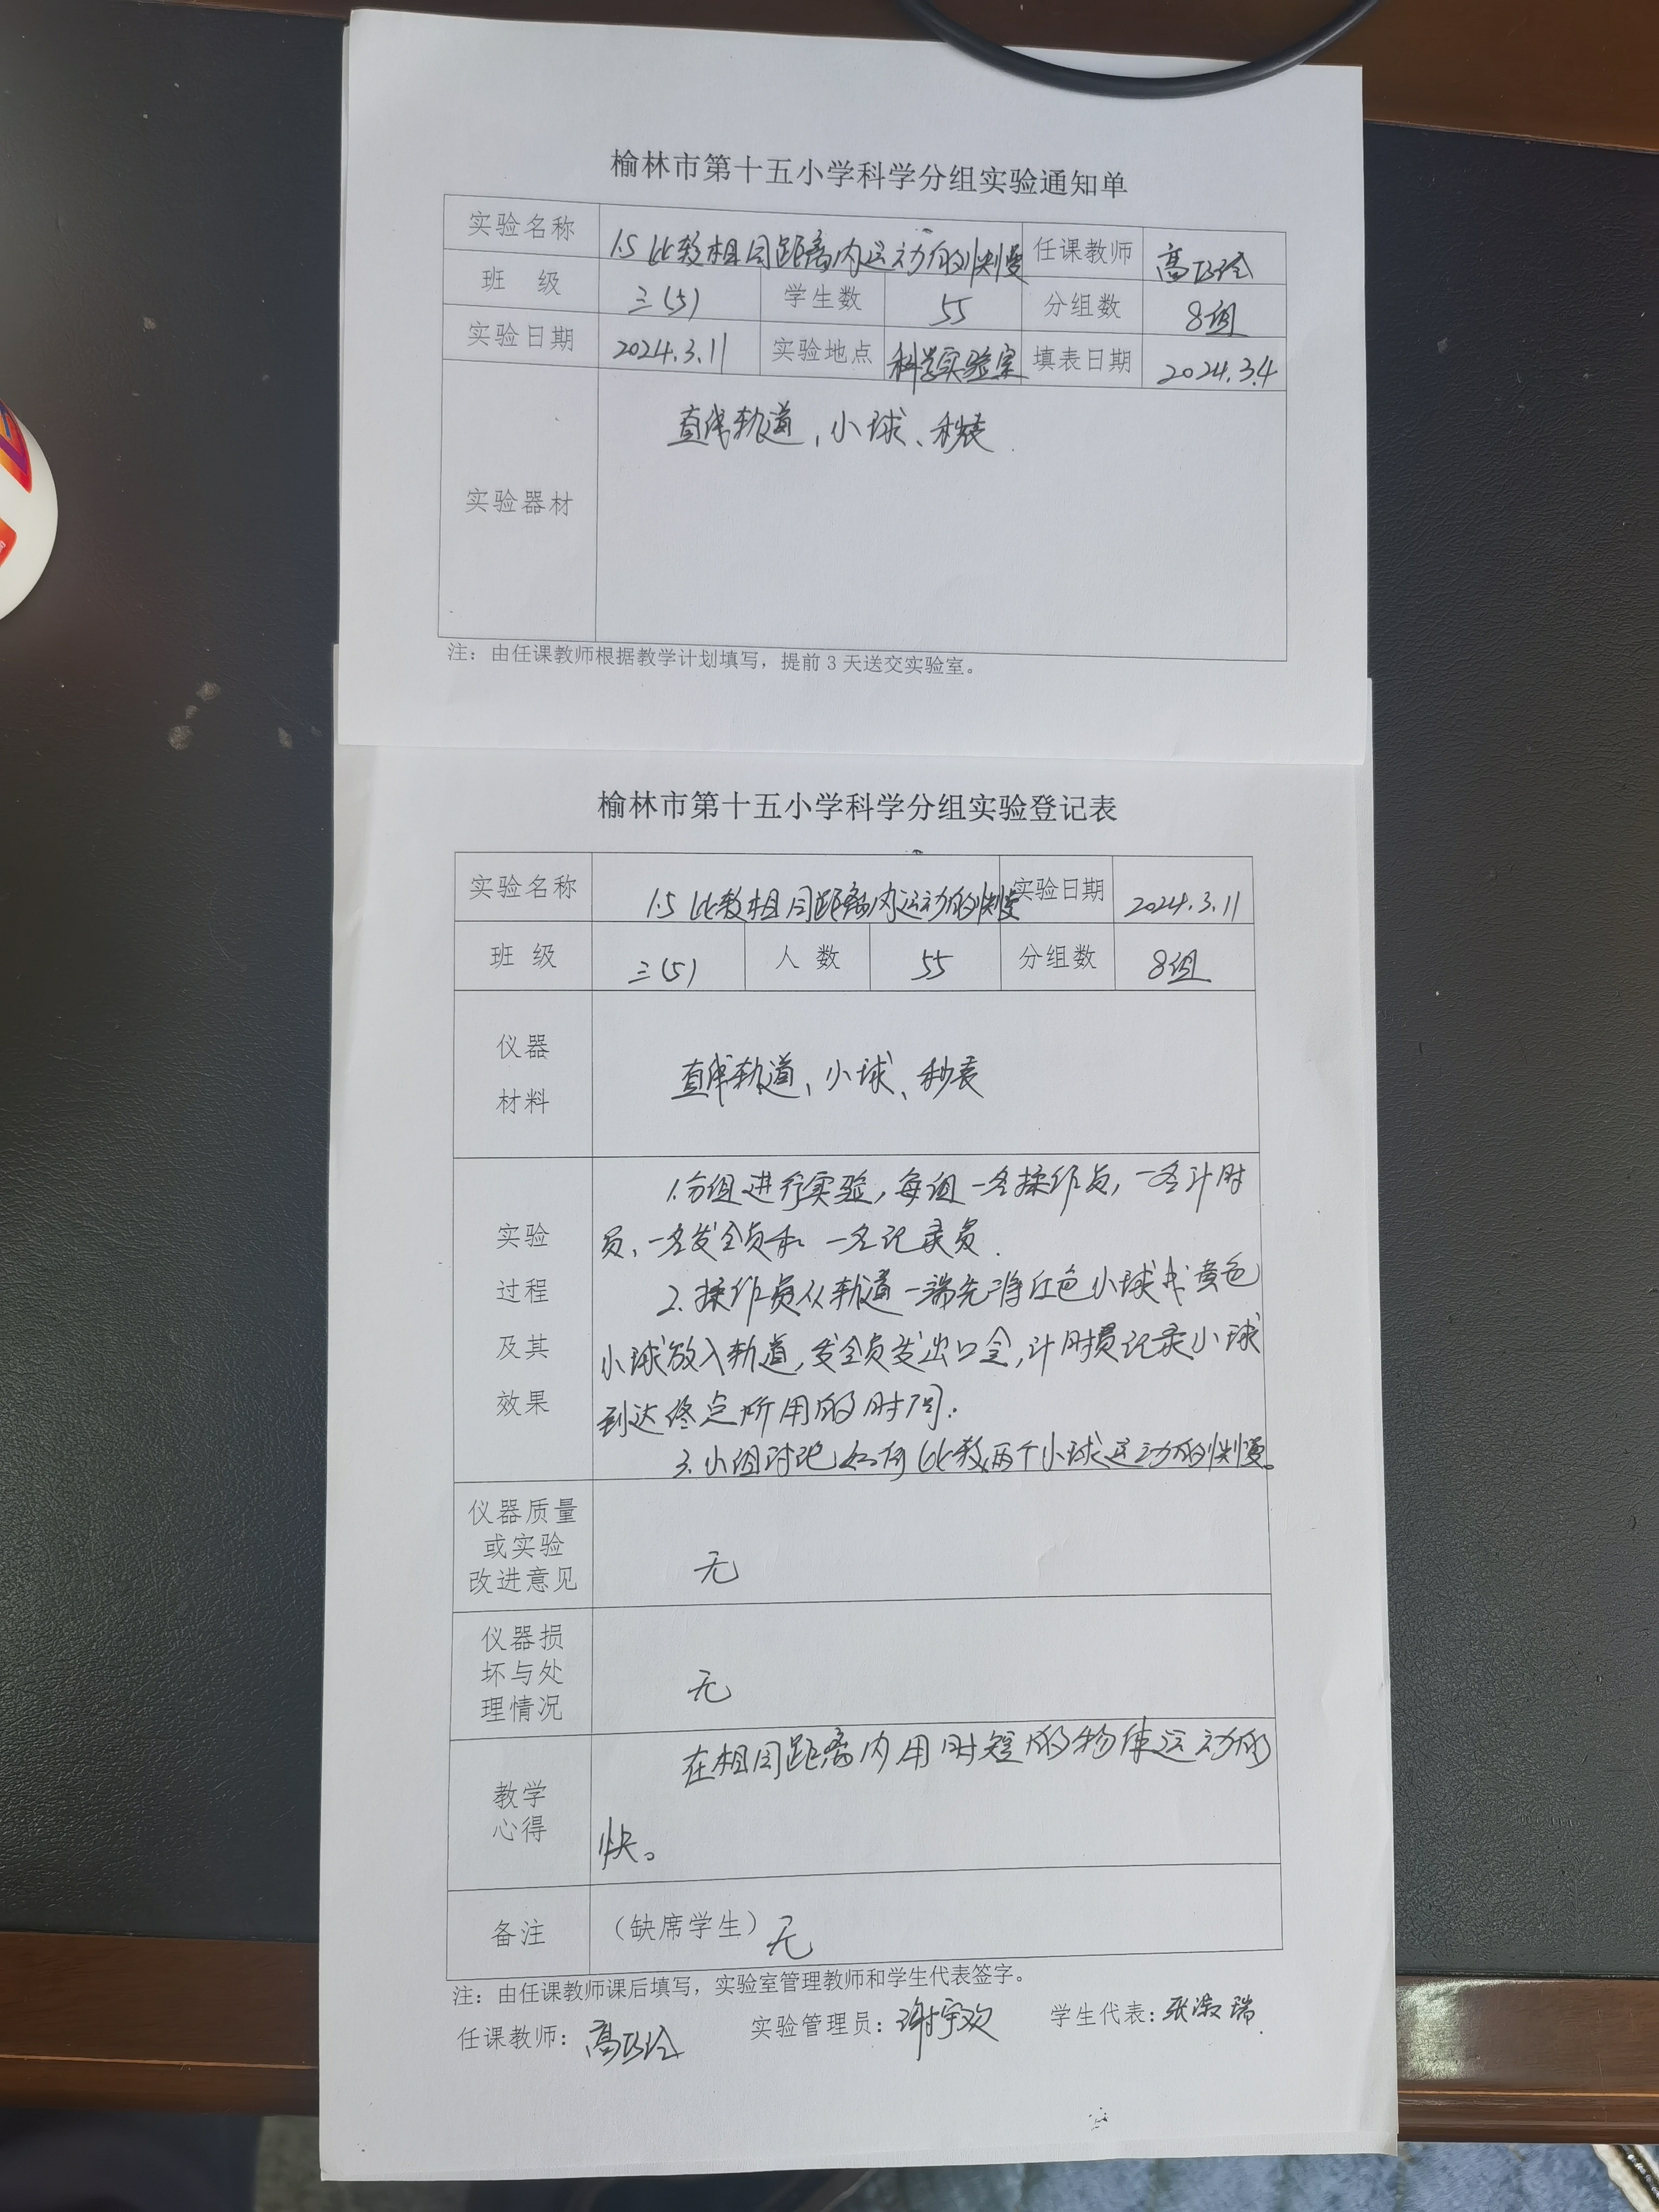 榆林市第十五小学科学分组实验通知单
实验名称 1.5 比较相同距离内运动的快慢 任课教师 高
班 级 三(5) 学生数 55 分组数 8组
实验日期 2024.3.11 实验地点 科学实验室 填表日期 2024.3.4
实验器材 直线轨道、小球、秒表.
注：由任课教师根据教学计划填写，提前 3 天送交实验室。
榆林市第十五小学科学分组实验登记表
实验名称 1.5 比较相同距离内运动的快慢 实验日期 2024.3.11
班 级 三(5) 人 数 55 分组数 8组
仪器
材料
直线轨道、小球、秒表
实验
过程
及其
效果
1.分组进行实验，每组一名操作员，一名计时
员、一名发令员和一名记录员.
2.操作员从轨道一端先将红色小球 黄色
小球放入轨道，发令员发出口令，计时员记录小球
到达终点所用的时间.
3.小组讨论如何比较两个小球运动的快慢。
仪器质量
或实验
改进意见
无
仪器损
坏与处
理情况
无
教学
心得
在相同距离内用时短的物体运动的
快。
备注 （缺席学生）无
注：由任课教师课后填写，实验室管理教师和学生代表签字。
任课教师：高 实验管理员：谢宇欢 学生代表：张 瑞.